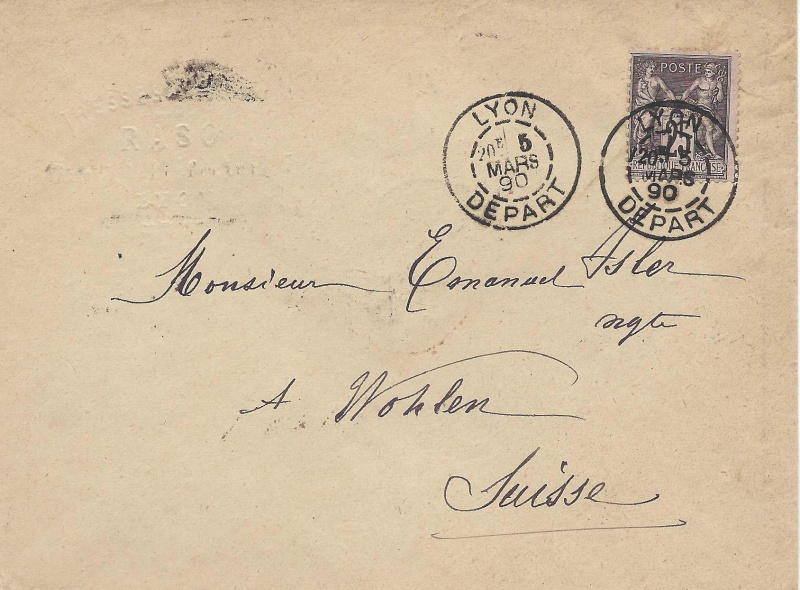 RASO
LYON
LYON
20E 5
MARS
90
DÉPART
POSTE
25
RÉPUBLIQUE FRANÇAISE
LYON
20E 5
MARS
90
DÉPART
Monsieur Emanuel Isler
ngte
A Wohlen
Suisse